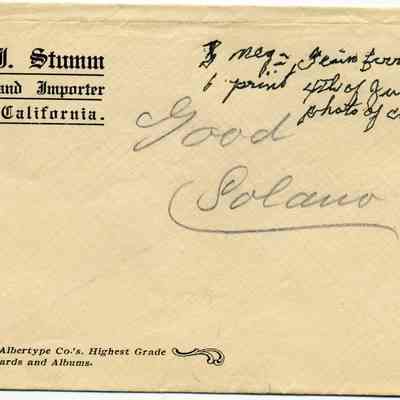 J. Stumm
and Importer
California.
neg
6 print
4th of Ju
photo of
Good
Solano
Albertype Co.'s. Highest Grade
ards and Albums.